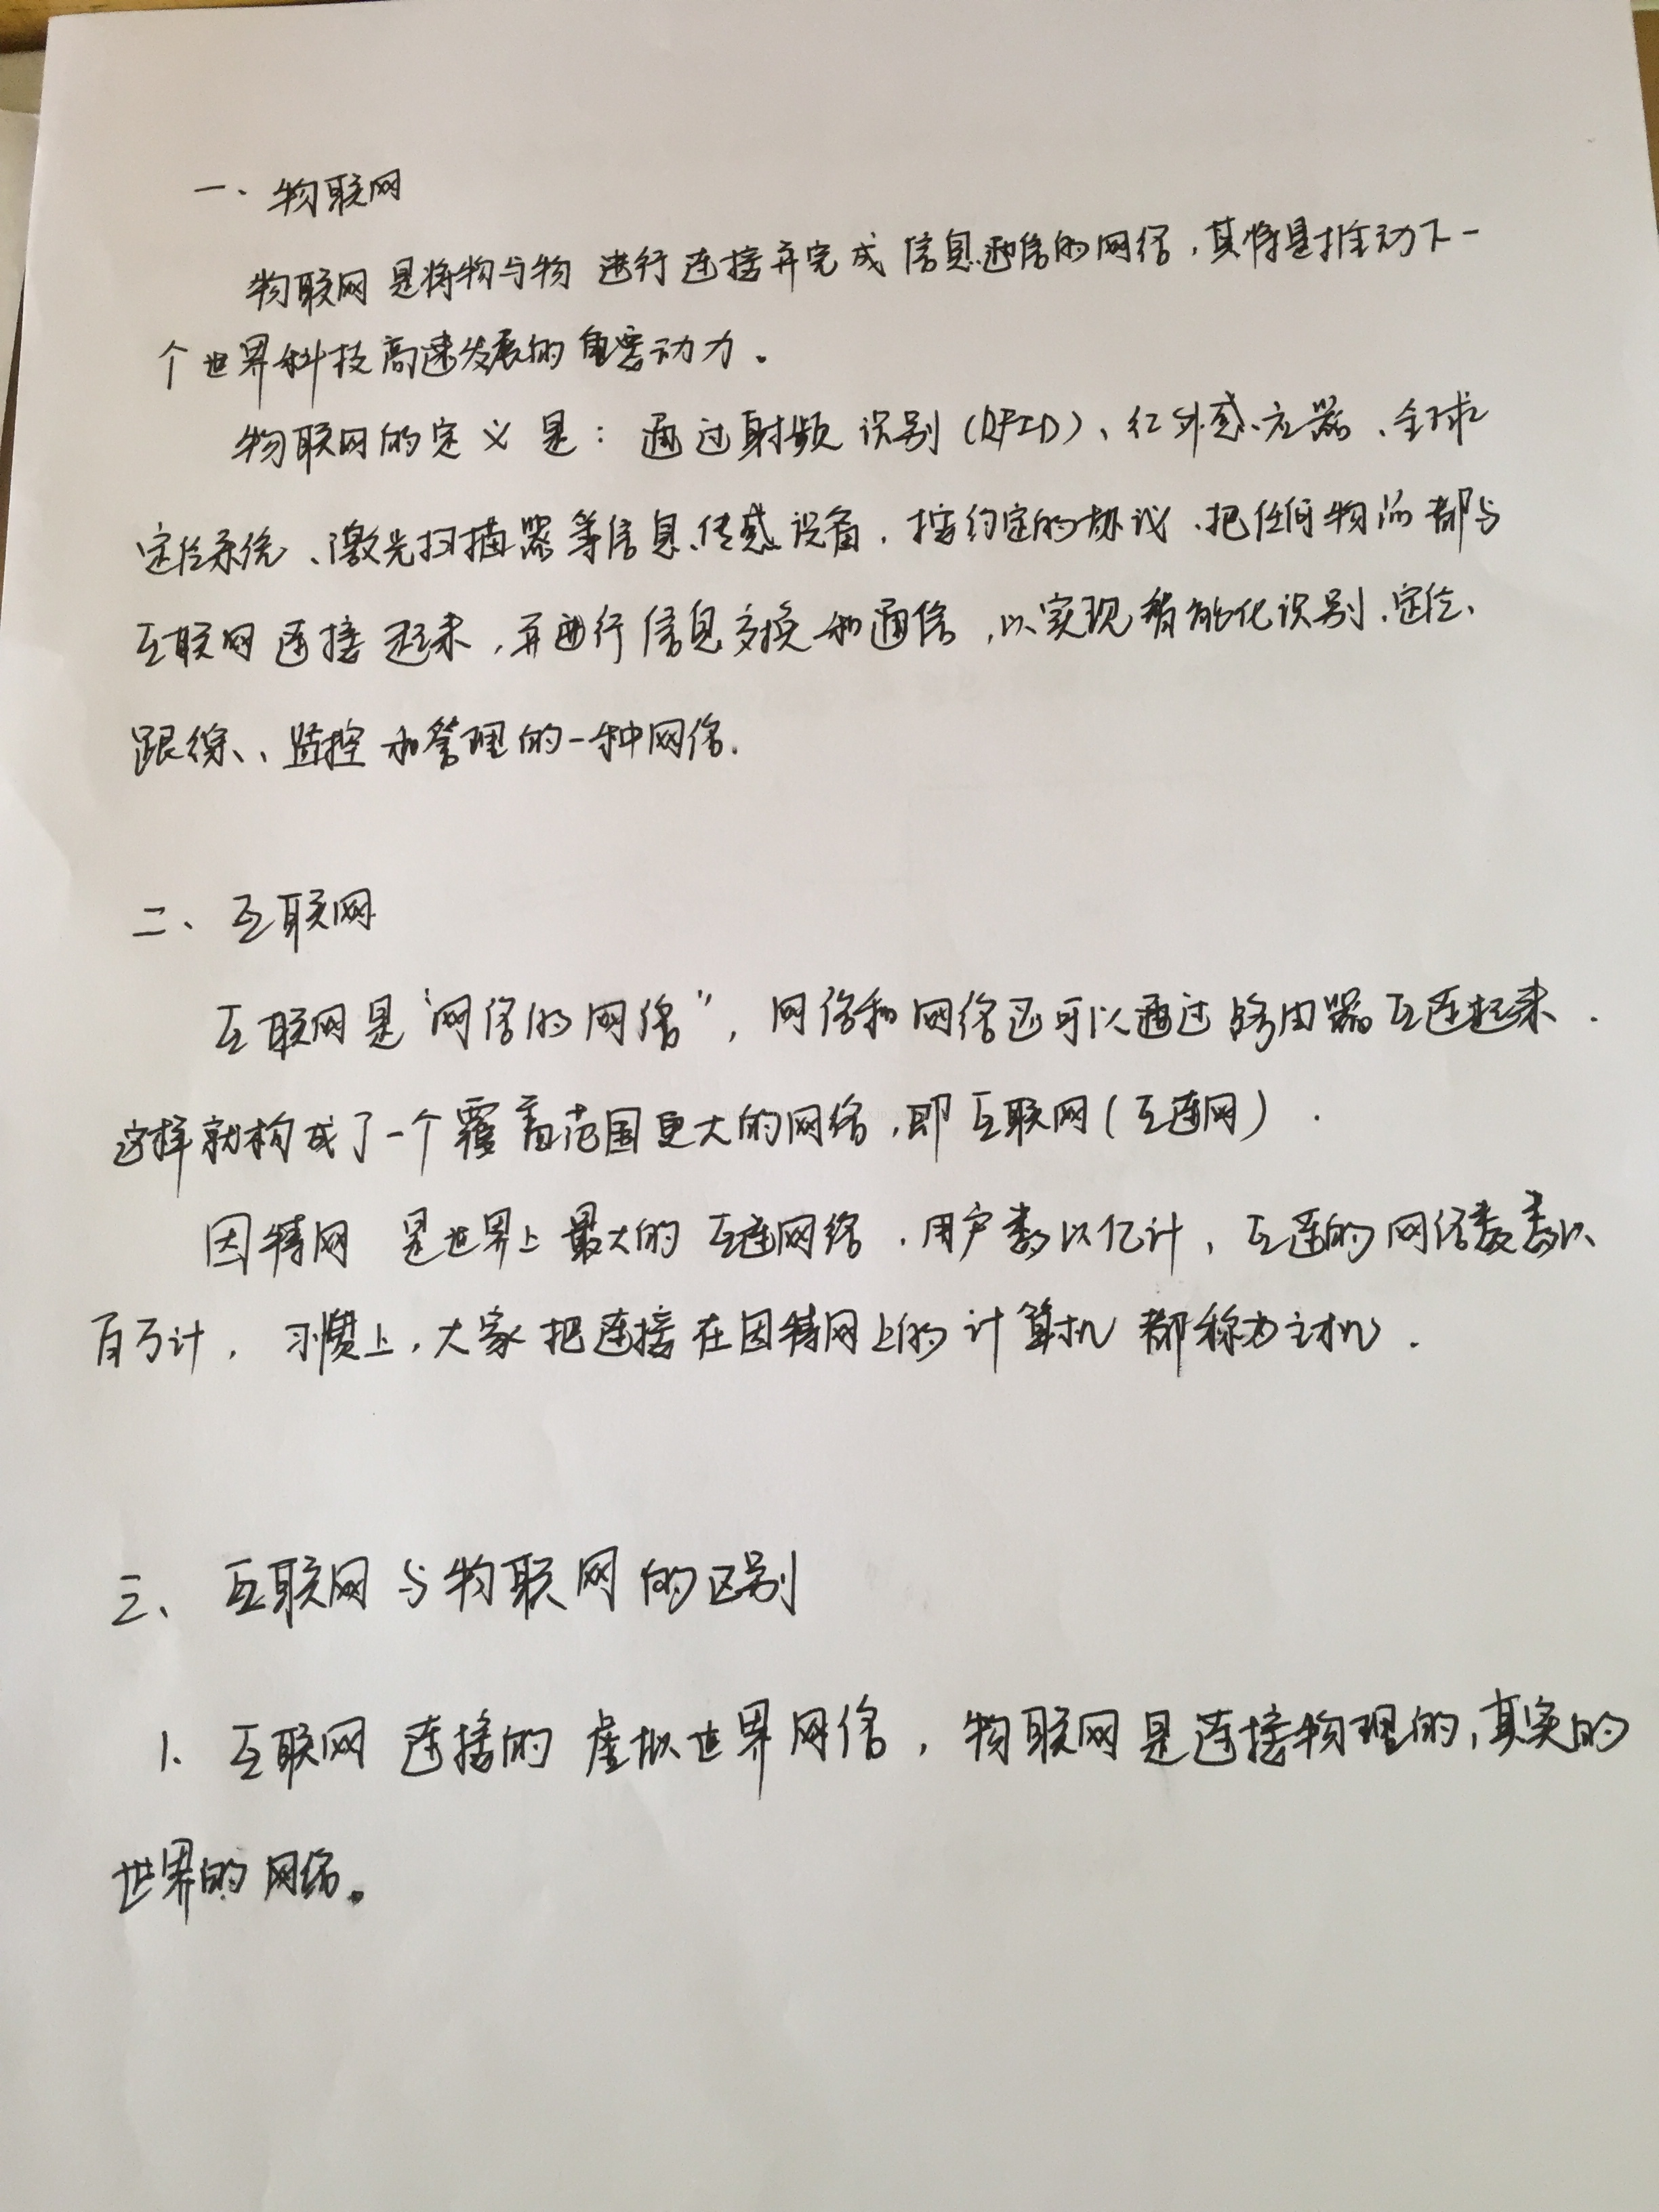 一、物联网
物联网是将物与物进行连接并完成信息通信的网络,其将是推动下一
个世界科技高速发展的重要动力。
物联网的定义是:通过射频识别(RFID)、红外感应器、全球
定位系统、激光扫描器等信息传感设备,按约定的协议、把任何物品都与
互联网连接起来,并进行信息交换和通信,以实现智能化识别、定位、
跟综、、监控和管理的一种网络.
二、互联网
互联网是“网络的网络”,网络和网络还可以通过路由器互连起来.
这样就构成了一个覆盖范围更大的网络,即互联网(互连网).
因特网是世界上最大的互连网络.用户数以亿计,互连的网络数数以
百万计,习惯上,大家把连接在因特网上的计算机都称为主机.
三、互联网与物联网的区别
1.互联网连接的虚拟世界网络,物联网是连接物理的,真实的
世界的网络。